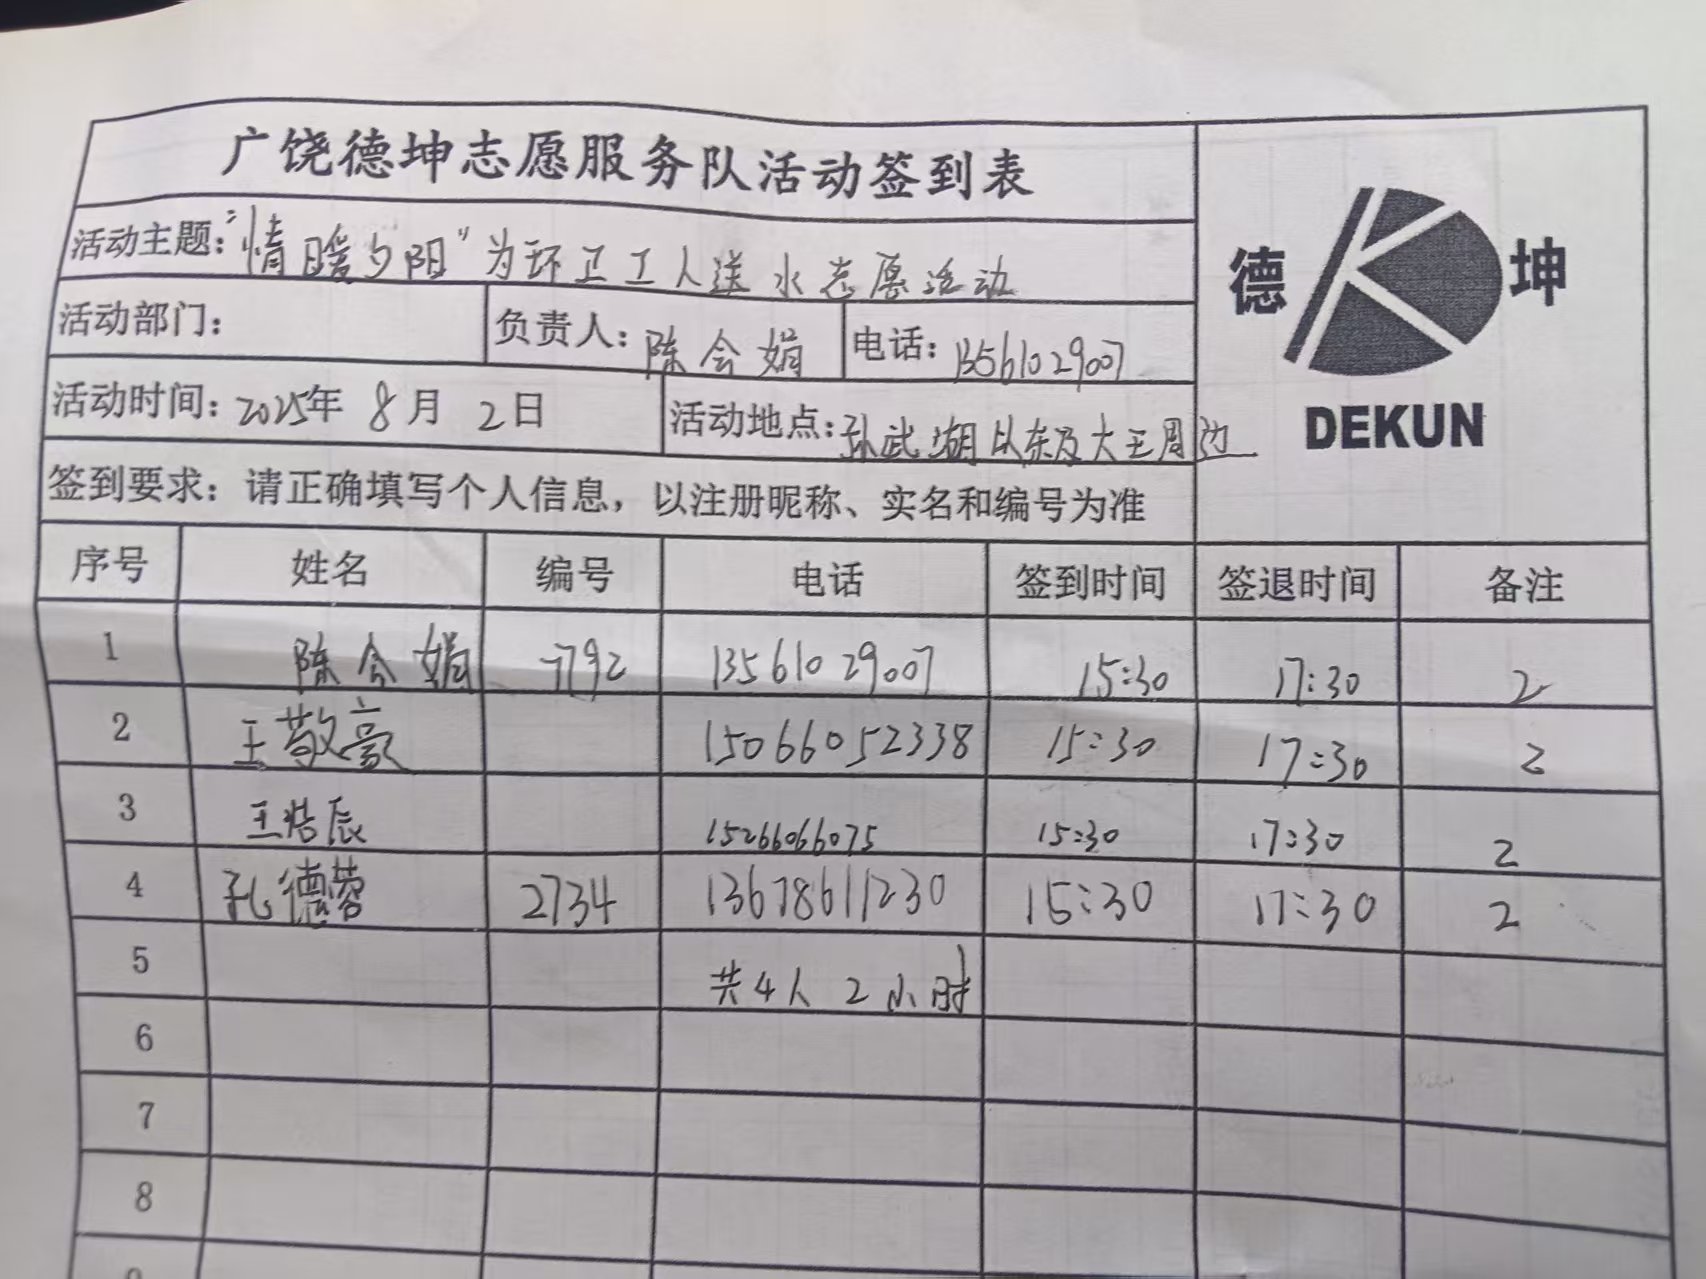 广饶德坤志愿服务队活动签到表
活动主题："情暖夕阳"为环卫工人送水志愿活动
德 坤
活动部门： 负责人：陈会娟 电话：13561029007
活动时间：2025年 8月 2日 活动地点：孙武湖以东及大王周边
DEKUN
签到要求：请正确填写个人信息，以注册昵称、实名和编号为准
序号 姓名 编号 电话 签到时间 签退时间 备注
1 陈会娟 7792 13561029007 15:30 17:30 2
2 王敬豪 15066052338 15:30 17:30 2
3 王浩辰 15266066075 15:30 17:30 2
4 孔德蓉 2734 13678611230 15:30 17:30 2
5 共4人 2小时
6
7
8